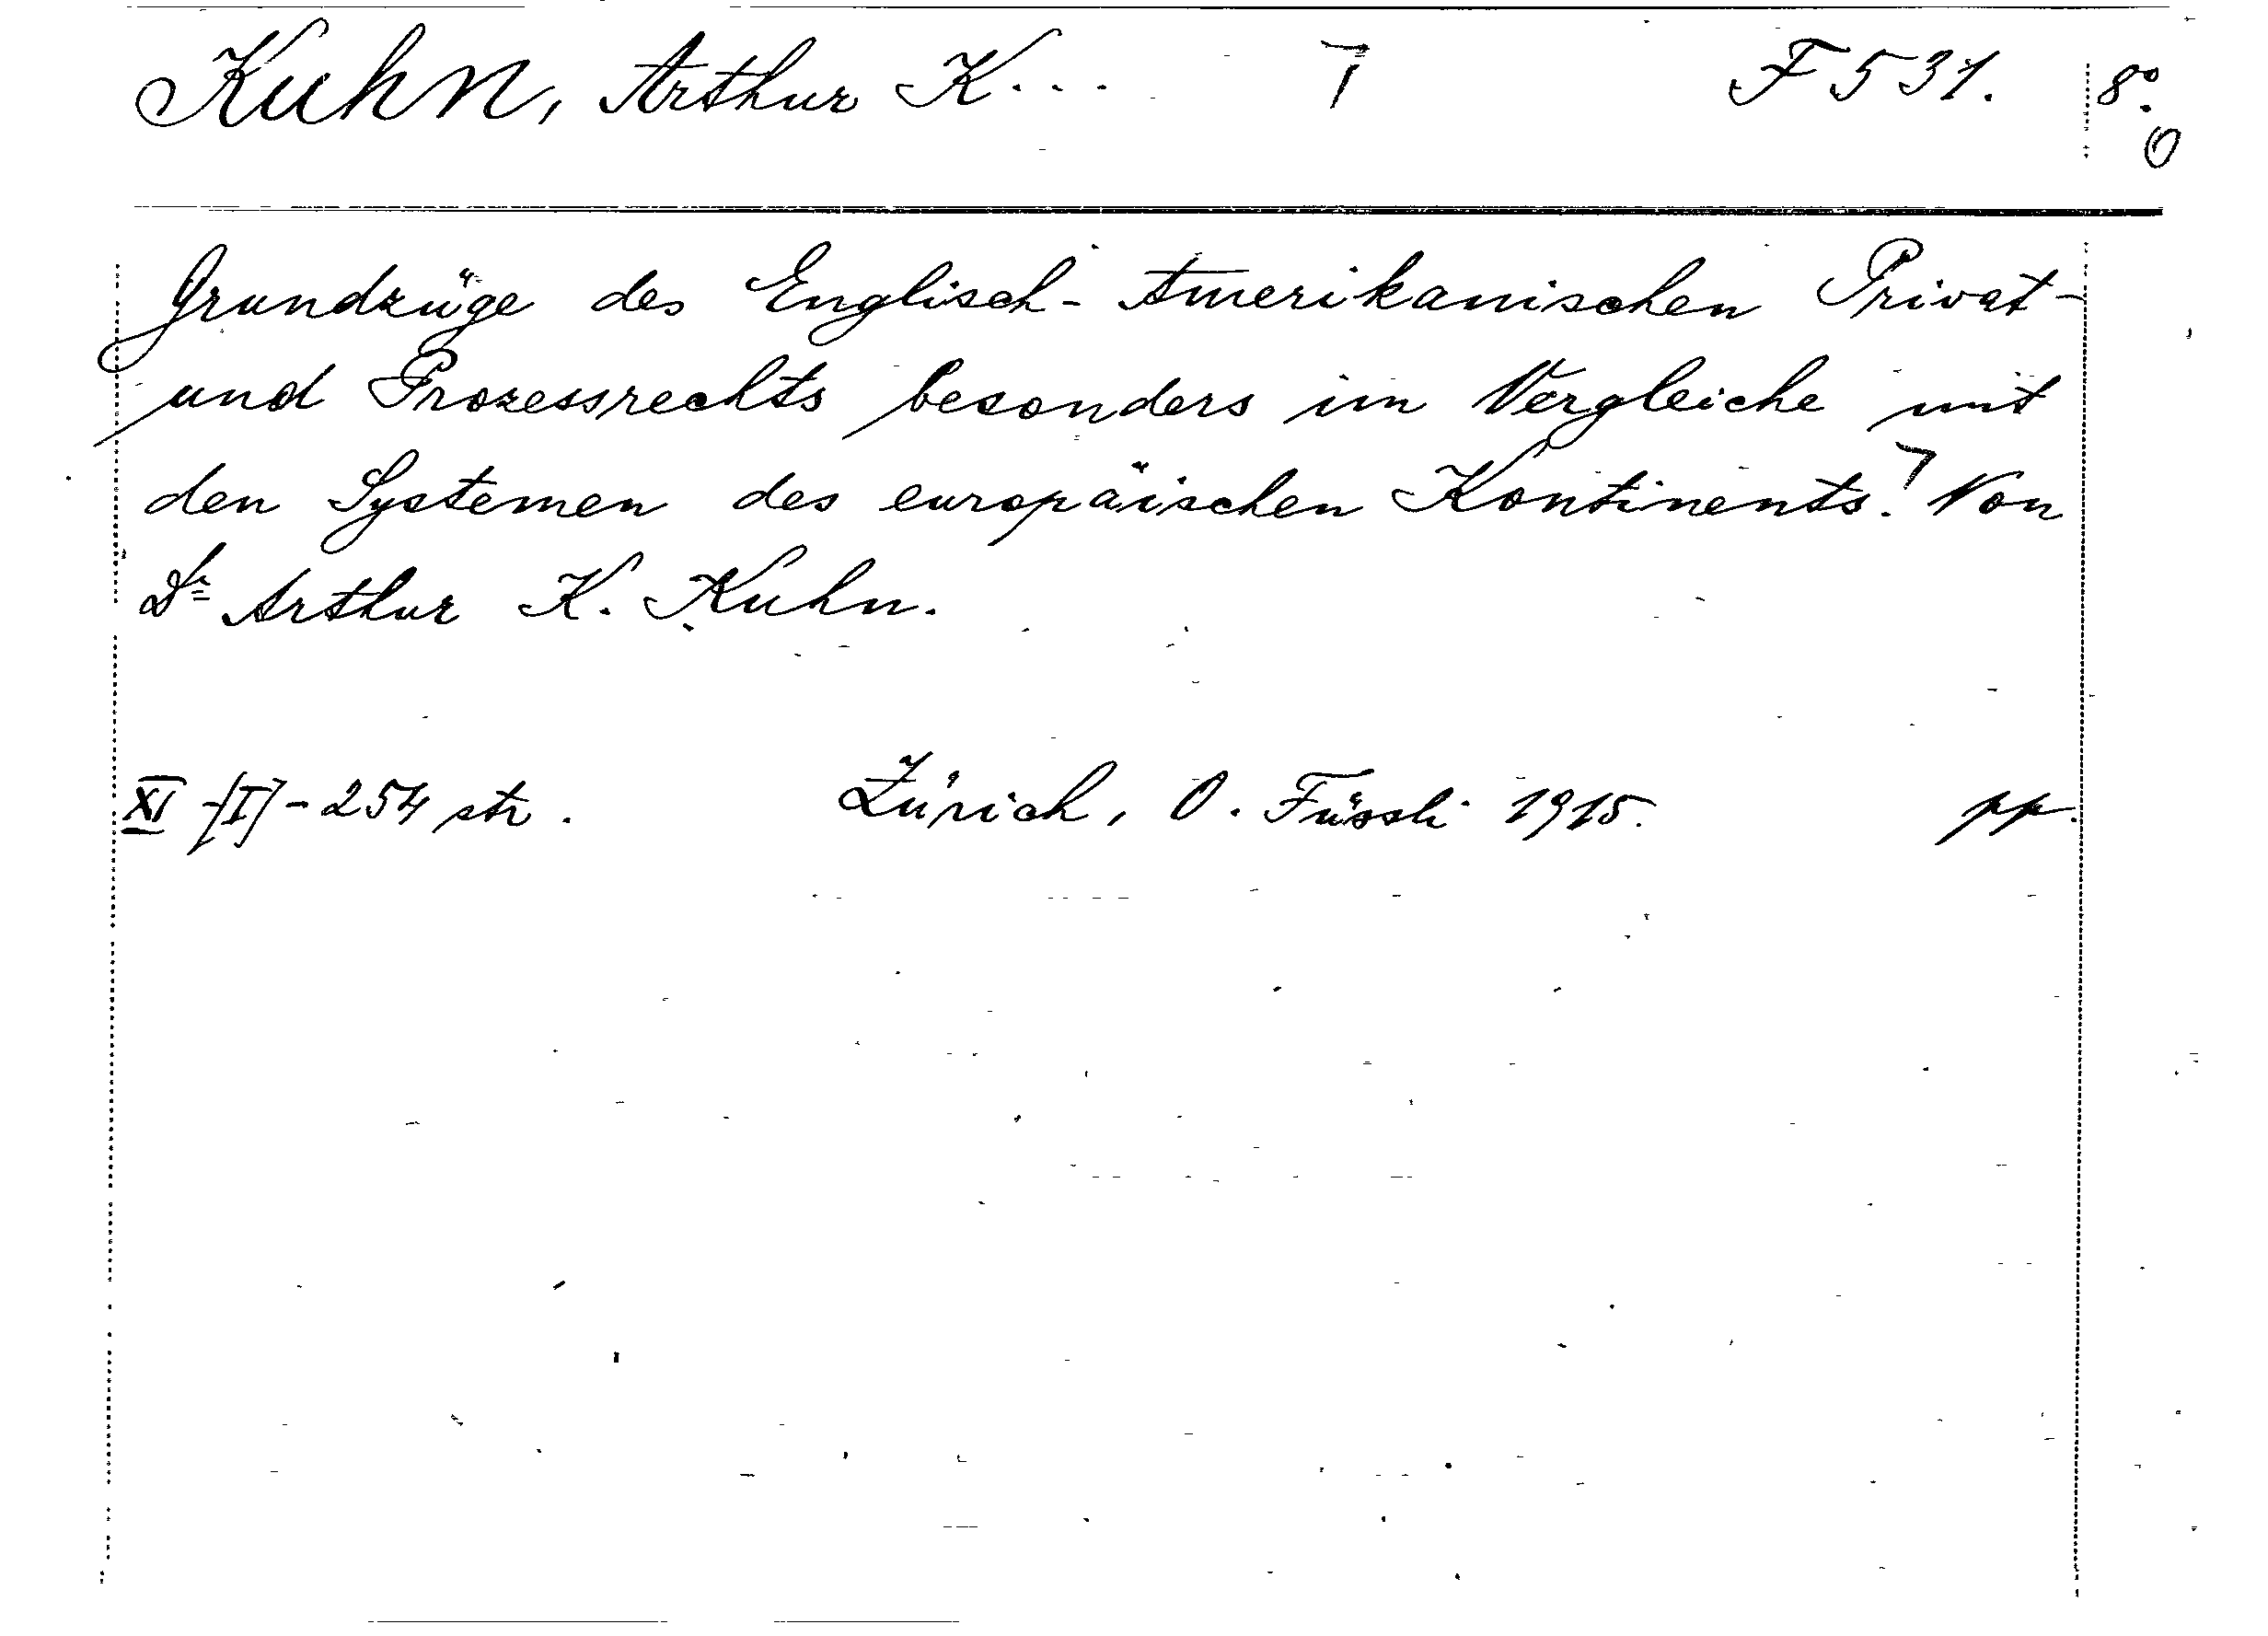 Kuhn, Arthur K... 7 F 531. 8°.
0
Grundzüge des Englisch-Amerikanischen Privat-
und Prozessrechts besonders im Vergleiche mit
den Systemen des europäischen Kontinents. Von
Dr Arthur K. Kuhn.
XI-[I]-254 str. Zürich, O. Füssli 1915. pp.